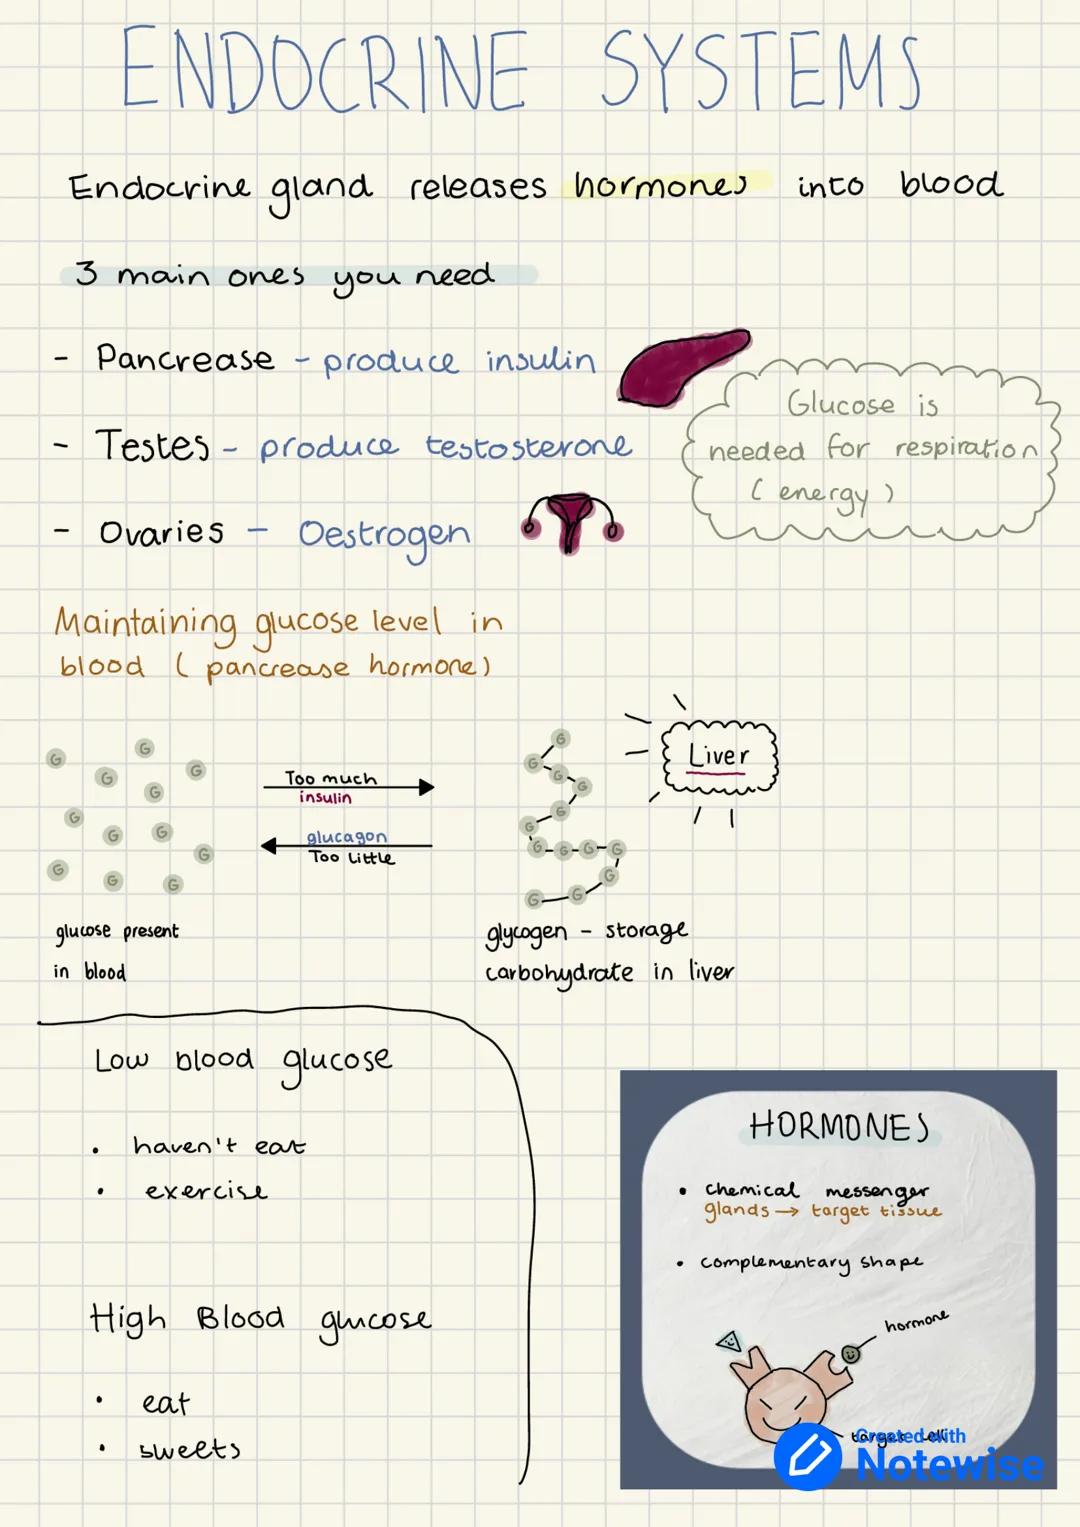 ENDOCRINE SYSTEMS
Endocrine gland releases hormones into blood
3 main ones you need
- Pancrease - produce insulin
- Testes - produce testosterone
- Ovaries - Oestrogen
Glucose is
needed for respiration
( energy )
Maintaining glucose level in
blood ( pancrease hormone)
G
G
G
G
G
G
G
G
G
G
G
G
Too much
insulin
glucagon
Too little
G
G
G
G
G
G
G
G
G
G
G
G
G
Liver
glucose present
in blood
glycogen - storage
carbohydrate in liver
Low blood glucose
• haven't eat
• exercise
High Blood glucose
• eat
• sweets
HORMONES
• chemical messenger
glands → target tissue
• complementary shape
hormone
target cell
Created with
Notewise